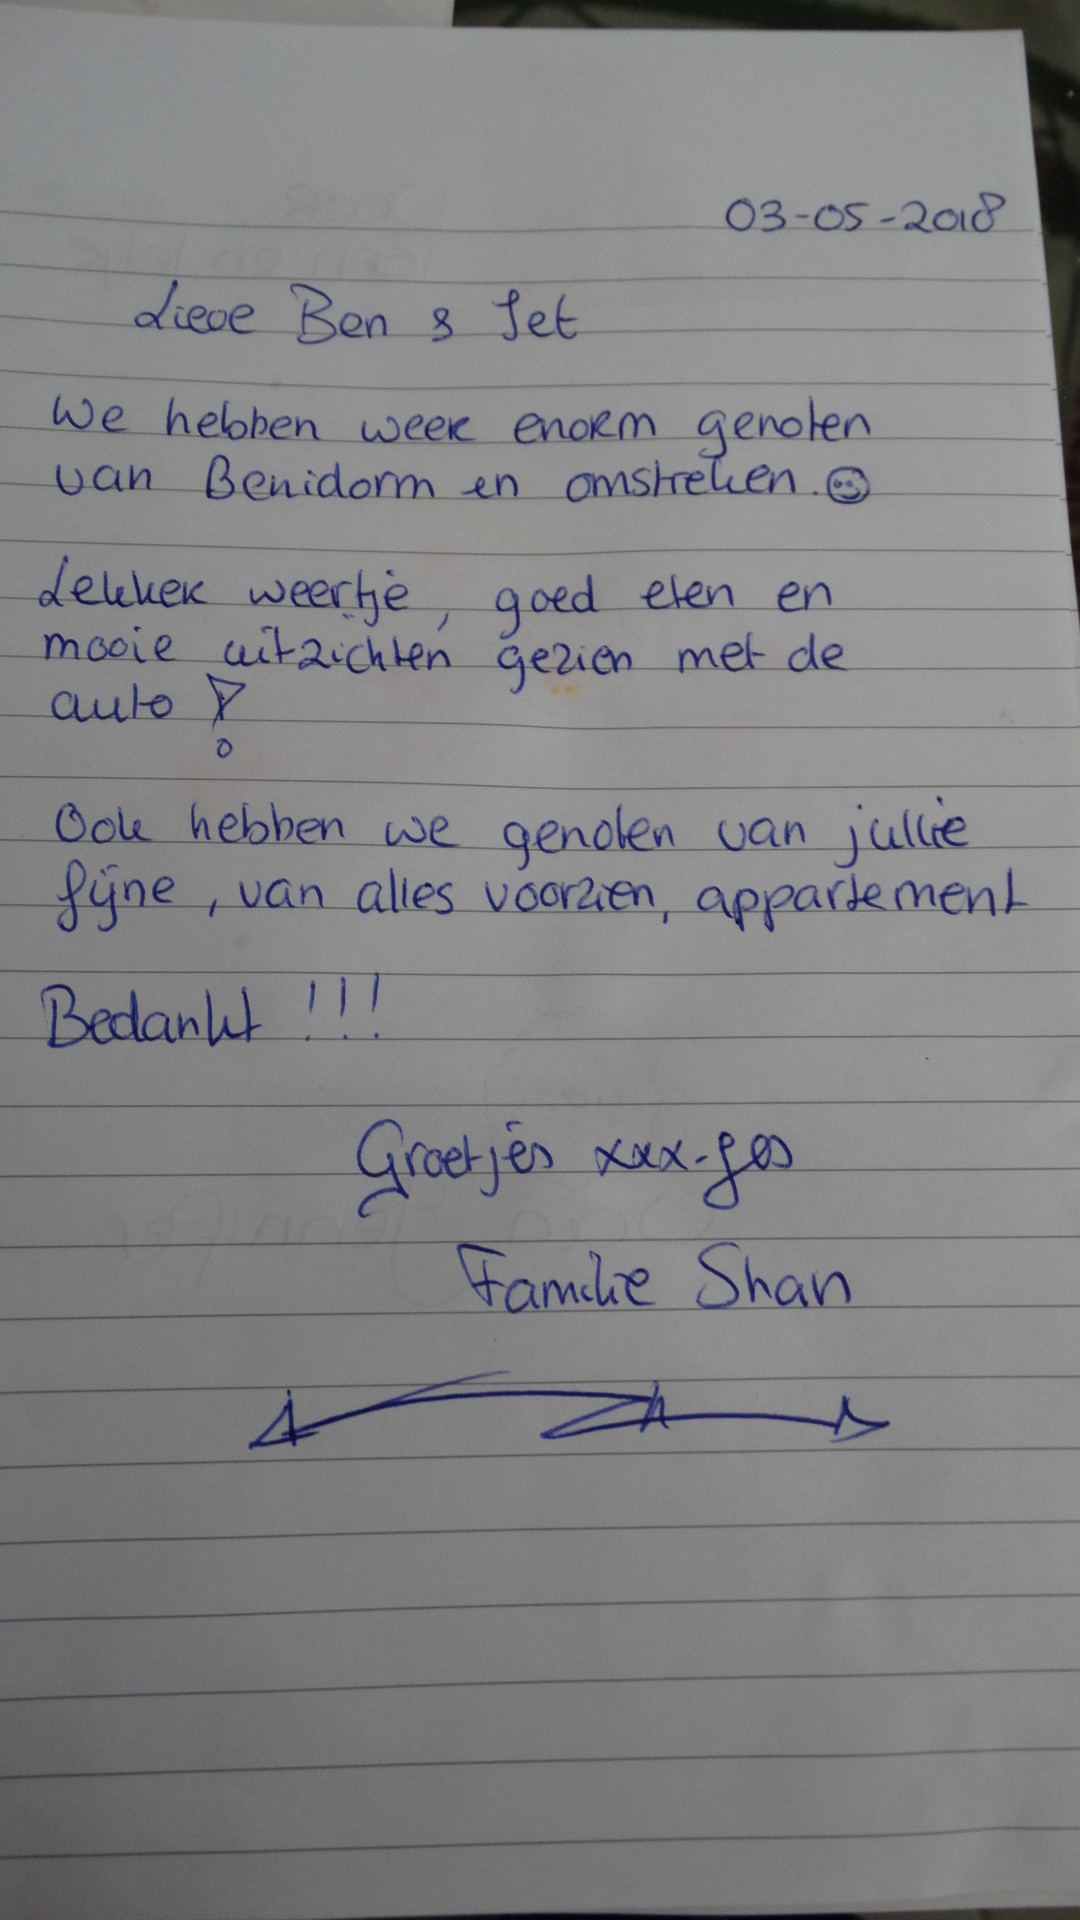 03-05-2018
Lieve Ben & Jet
We hebben week enorm genoten
van Benidorm en omstreken. ☺
Lekker weertje, goed eten en
mooie uitzichten gezien met de
auto!
Ook hebben we genoten van jullie
fijne, van alles voorzien, appartement
Bedankt !!!
Groetjes xxx-jes
Familie Shan